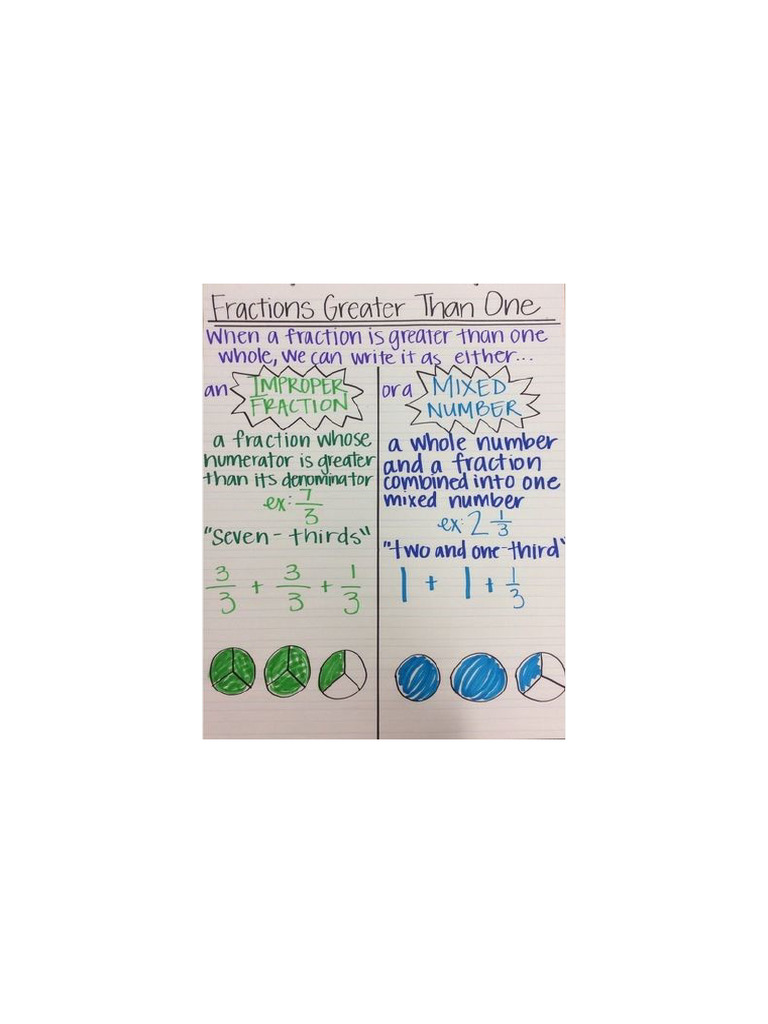 Fractions Greater Than One
When a fraction is greater than one
whole, we can write it as either...
an IMPROPER
FRACTION
a fraction whose
numerator is greater
than its denominator
ex: 7/3
"Seven-thirds"
3/3 + 3/3 + 1/3
or a MIXED
NUMBER
a whole number
and a fraction
combined into one
mixed number
ex: 2 1/3
"two and one-third"
1 + 1 + 1/3